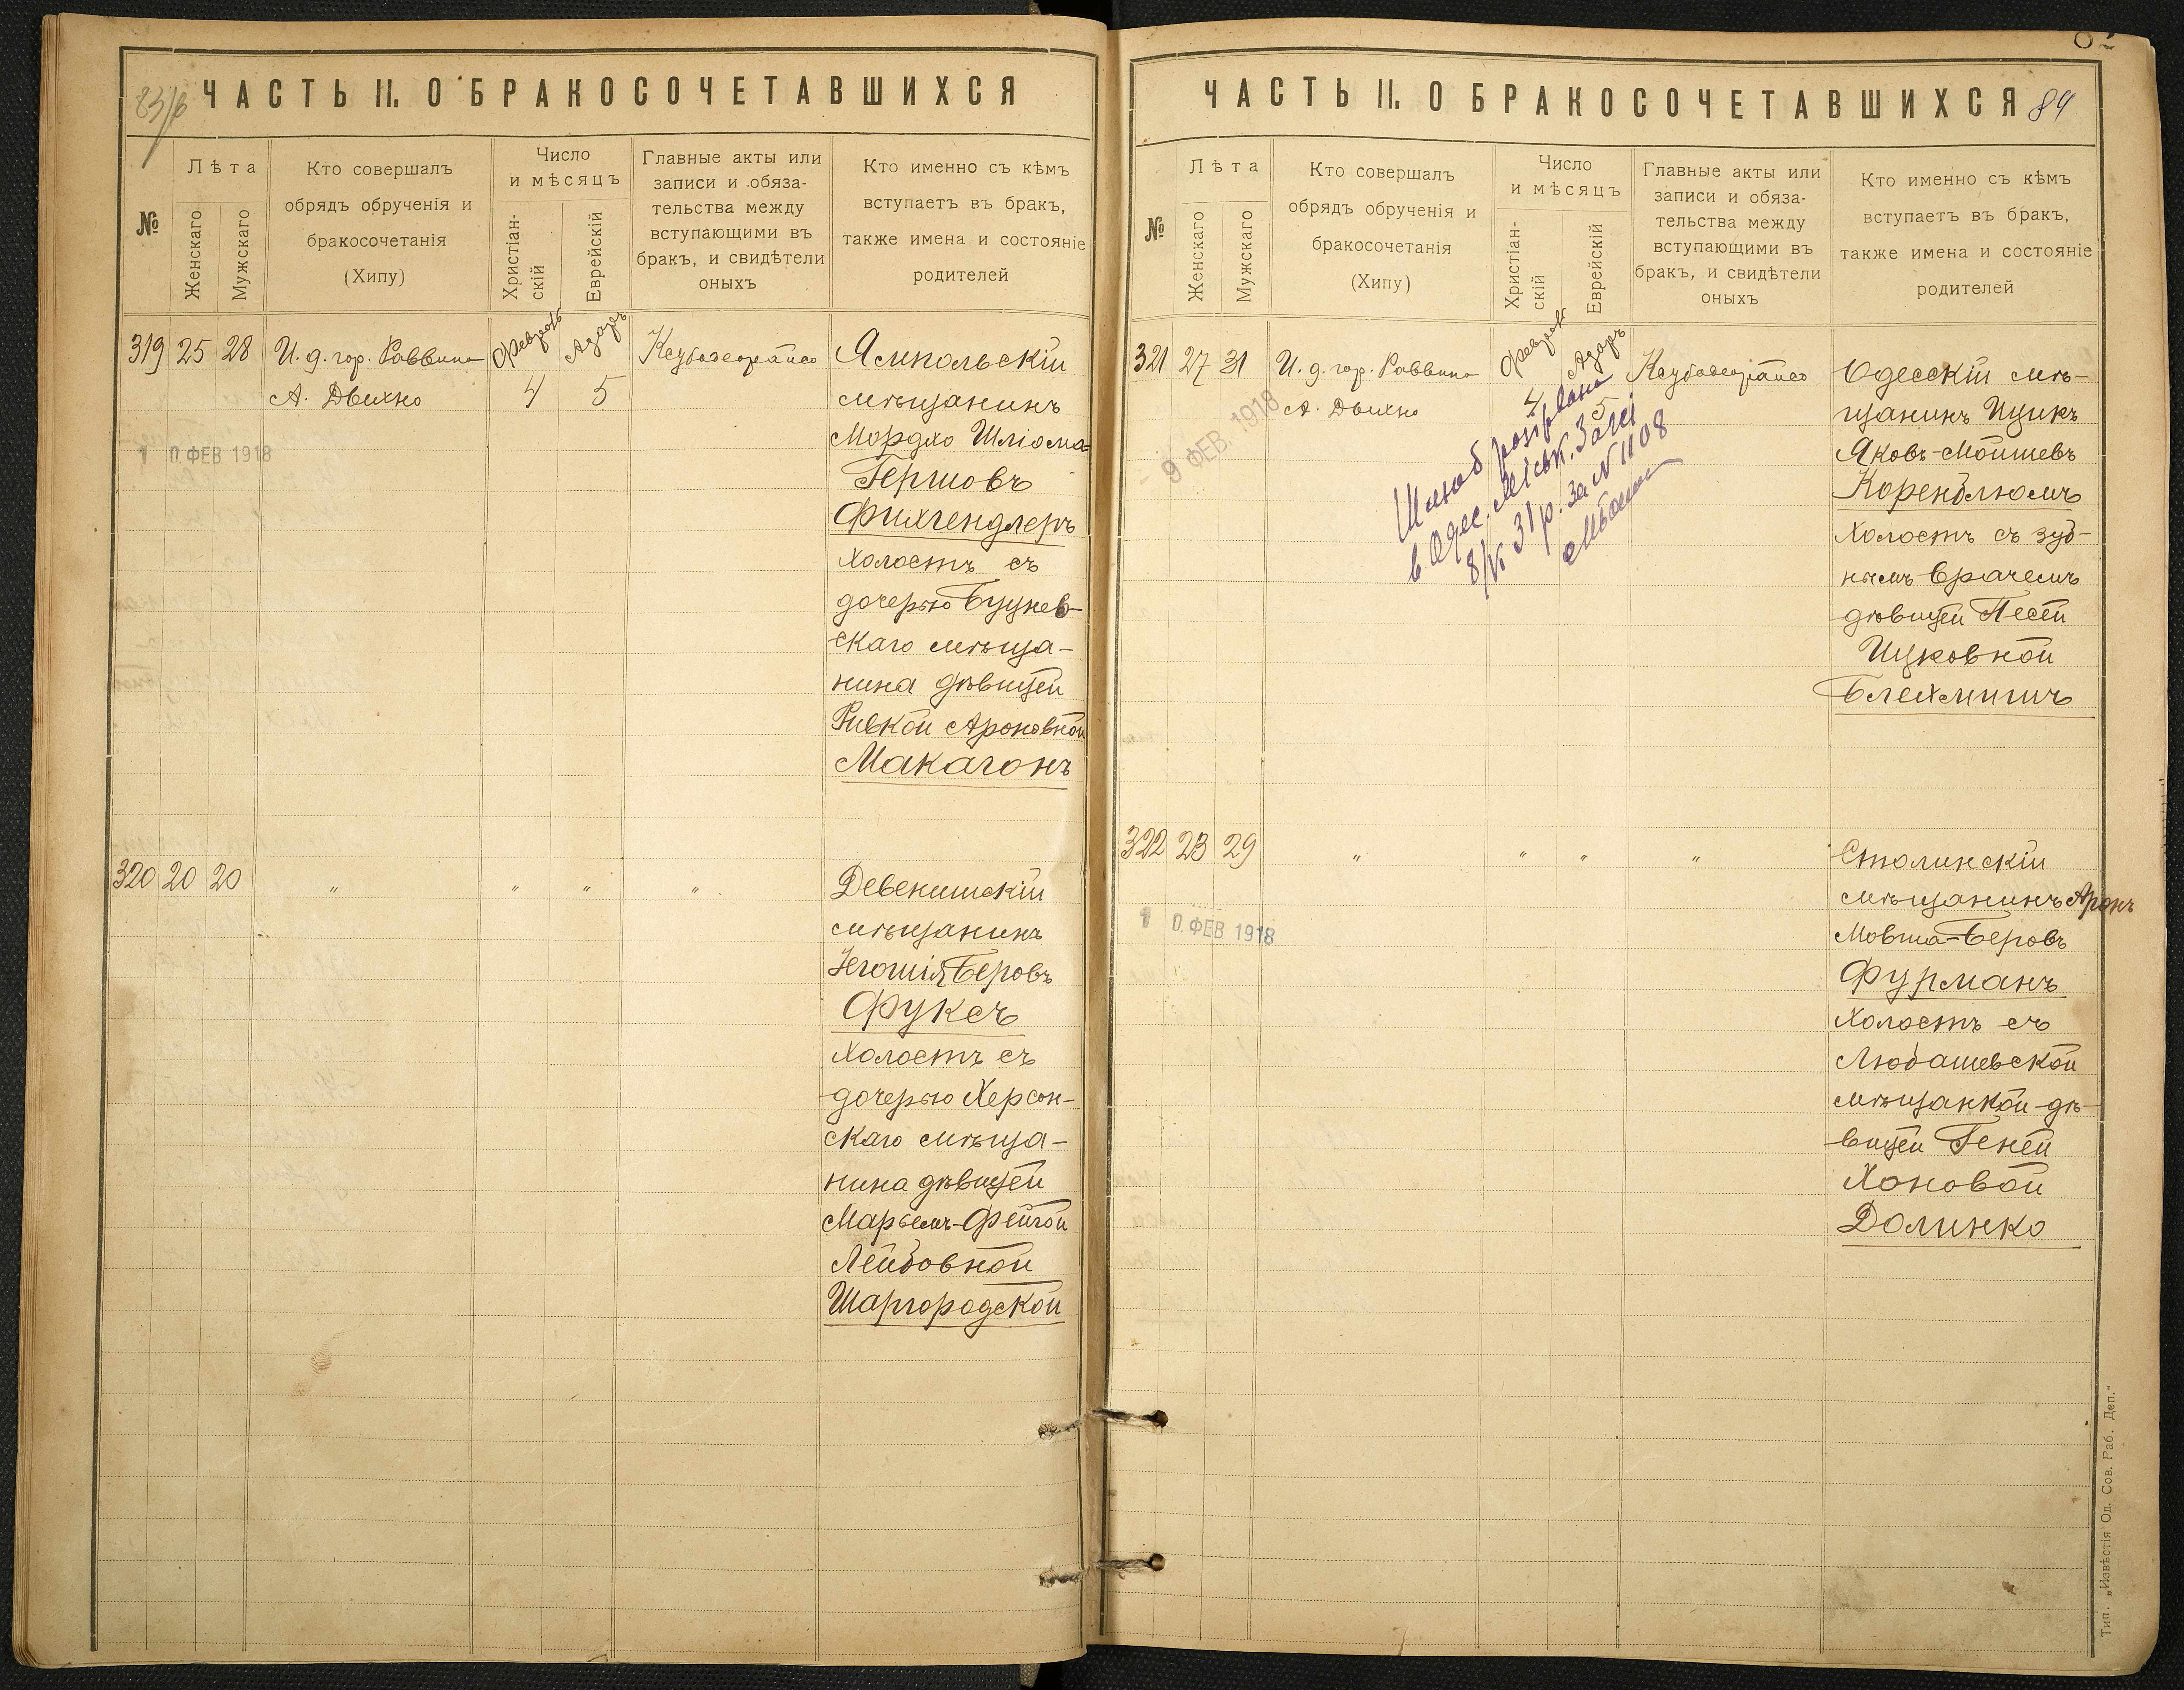 83/б
ЧАСТЬ II. О БРАКОСОЧЕТАВШИХСЯ
№
Лѣта
Женскаго
Мужскаго
Кто совершалъ
обрядъ обрученія и
бракосочетанія
(Хипу)
Число
и мѣсяцъ
Христіан-
скій
Еврейскій
Главные акты или
записи и обяза-
тельства между
вступающими въ
бракъ, и свидѣтели
оныхъ
Кто именно съ кѣмъ
вступаетъ въ бракъ,
также имена и состояніе
родителей
319 25 28
И. д. гор. Раввина
А. Двихно
Февраль
4
Адаръ
5
1 0. ФЕВ 1918
Ямпольскій
мѣщанинъ
Мордхо Шліома-
Гершовъ
Фихгендлеръ
холостъ съ
дочерью Буцнев-
скаго мѣща-
нина дѣвицей
Ривкой Ароновной
Макагонъ
320 20 20
" " " "
Девенишскій
мѣщанинъ
Іегошія Беровъ
Фуксъ
холостъ съ
дочерью Херсон-
скаго мѣща-
нина дѣвицей
Марьемъ-Фейгой
Лейбовной
Шаргородской
ЧАСТЬ II. О БРАКОСОЧЕТАВШИХСЯ
84
№
Лѣта
Женскаго
Мужскаго
Кто совершалъ
обрядъ обрученія и
бракосочетанія
(Хипу)
Число
и мѣсяцъ
Христіан-
скій
Еврейскій
Главные акты или
записи и обяза-
тельства между
вступающими въ
бракъ, и свидѣтели
оныхъ
Кто именно съ кѣмъ
вступаетъ въ бракъ,
также имена и состояніе
родителей
321 27 31
И. д. гор. Раввина
А. Двихно
Февраль
4
Адаръ
5
9 ФЕВ. 1918
Шлюб розірвано
в Одес. Міськ. Загсі
31 р. за N 1108
Одесскій мѣ-
щанинъ Ицикъ
Яковъ-Мойшевъ
Коренблюмъ
холостъ съ зуб-
нымъ врачемъ
дѣвицей Песей
Ицковной
Блехманъ
322 23 29
" " " "
1 0. ФЕВ 1918
Столинскій
мѣщанинъ Аронъ
Мовша-Беровъ
Фурманъ
холостъ съ
Любашевской
мѣщанкой дѣ-
вицей Геней
Хоновой
Долинко
Тип. „Извѣстія Од. Сов. Раб. Деп."